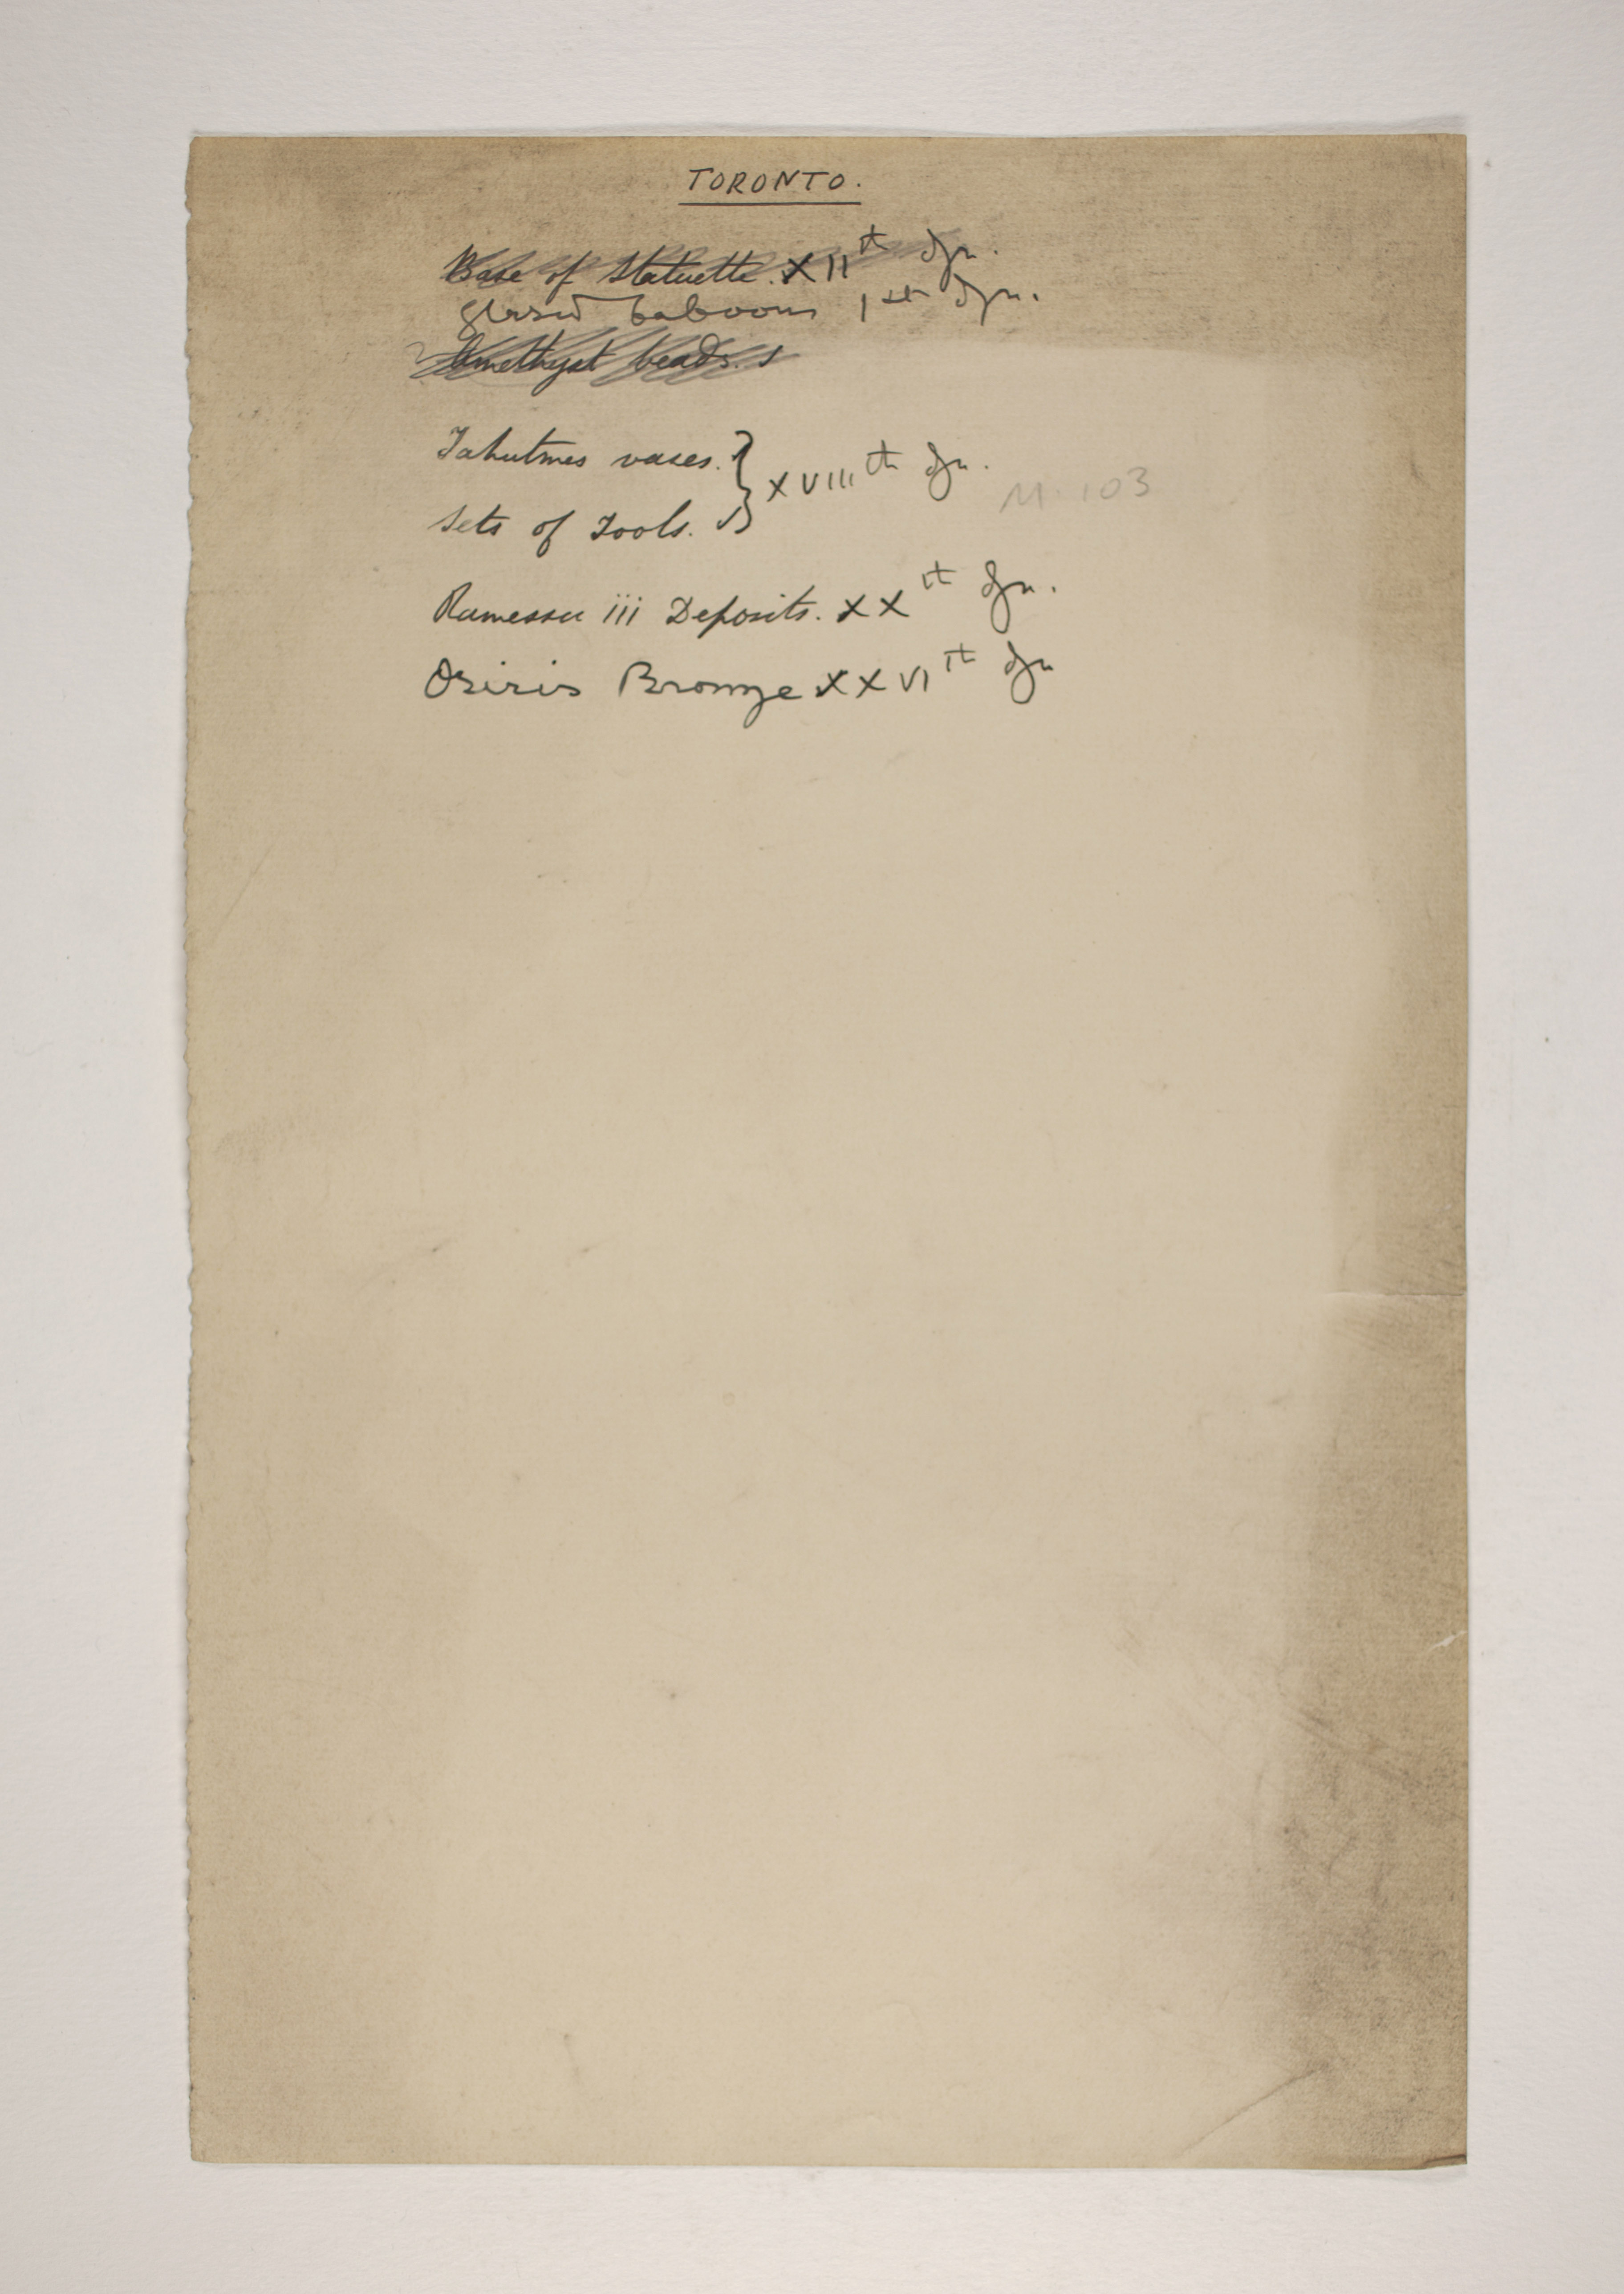 TORONTO.
Base of Statuette. XIIth Dyn.
glazed baboons 1st Dyn.
Amethyst beads.
Tahutmes vases.
XVIIIth Dyn.
M. 103
Sets of Tools.
Ramessu iii Deposits. XXth Dyn.
Osiris Bronze XXVIth Dyn